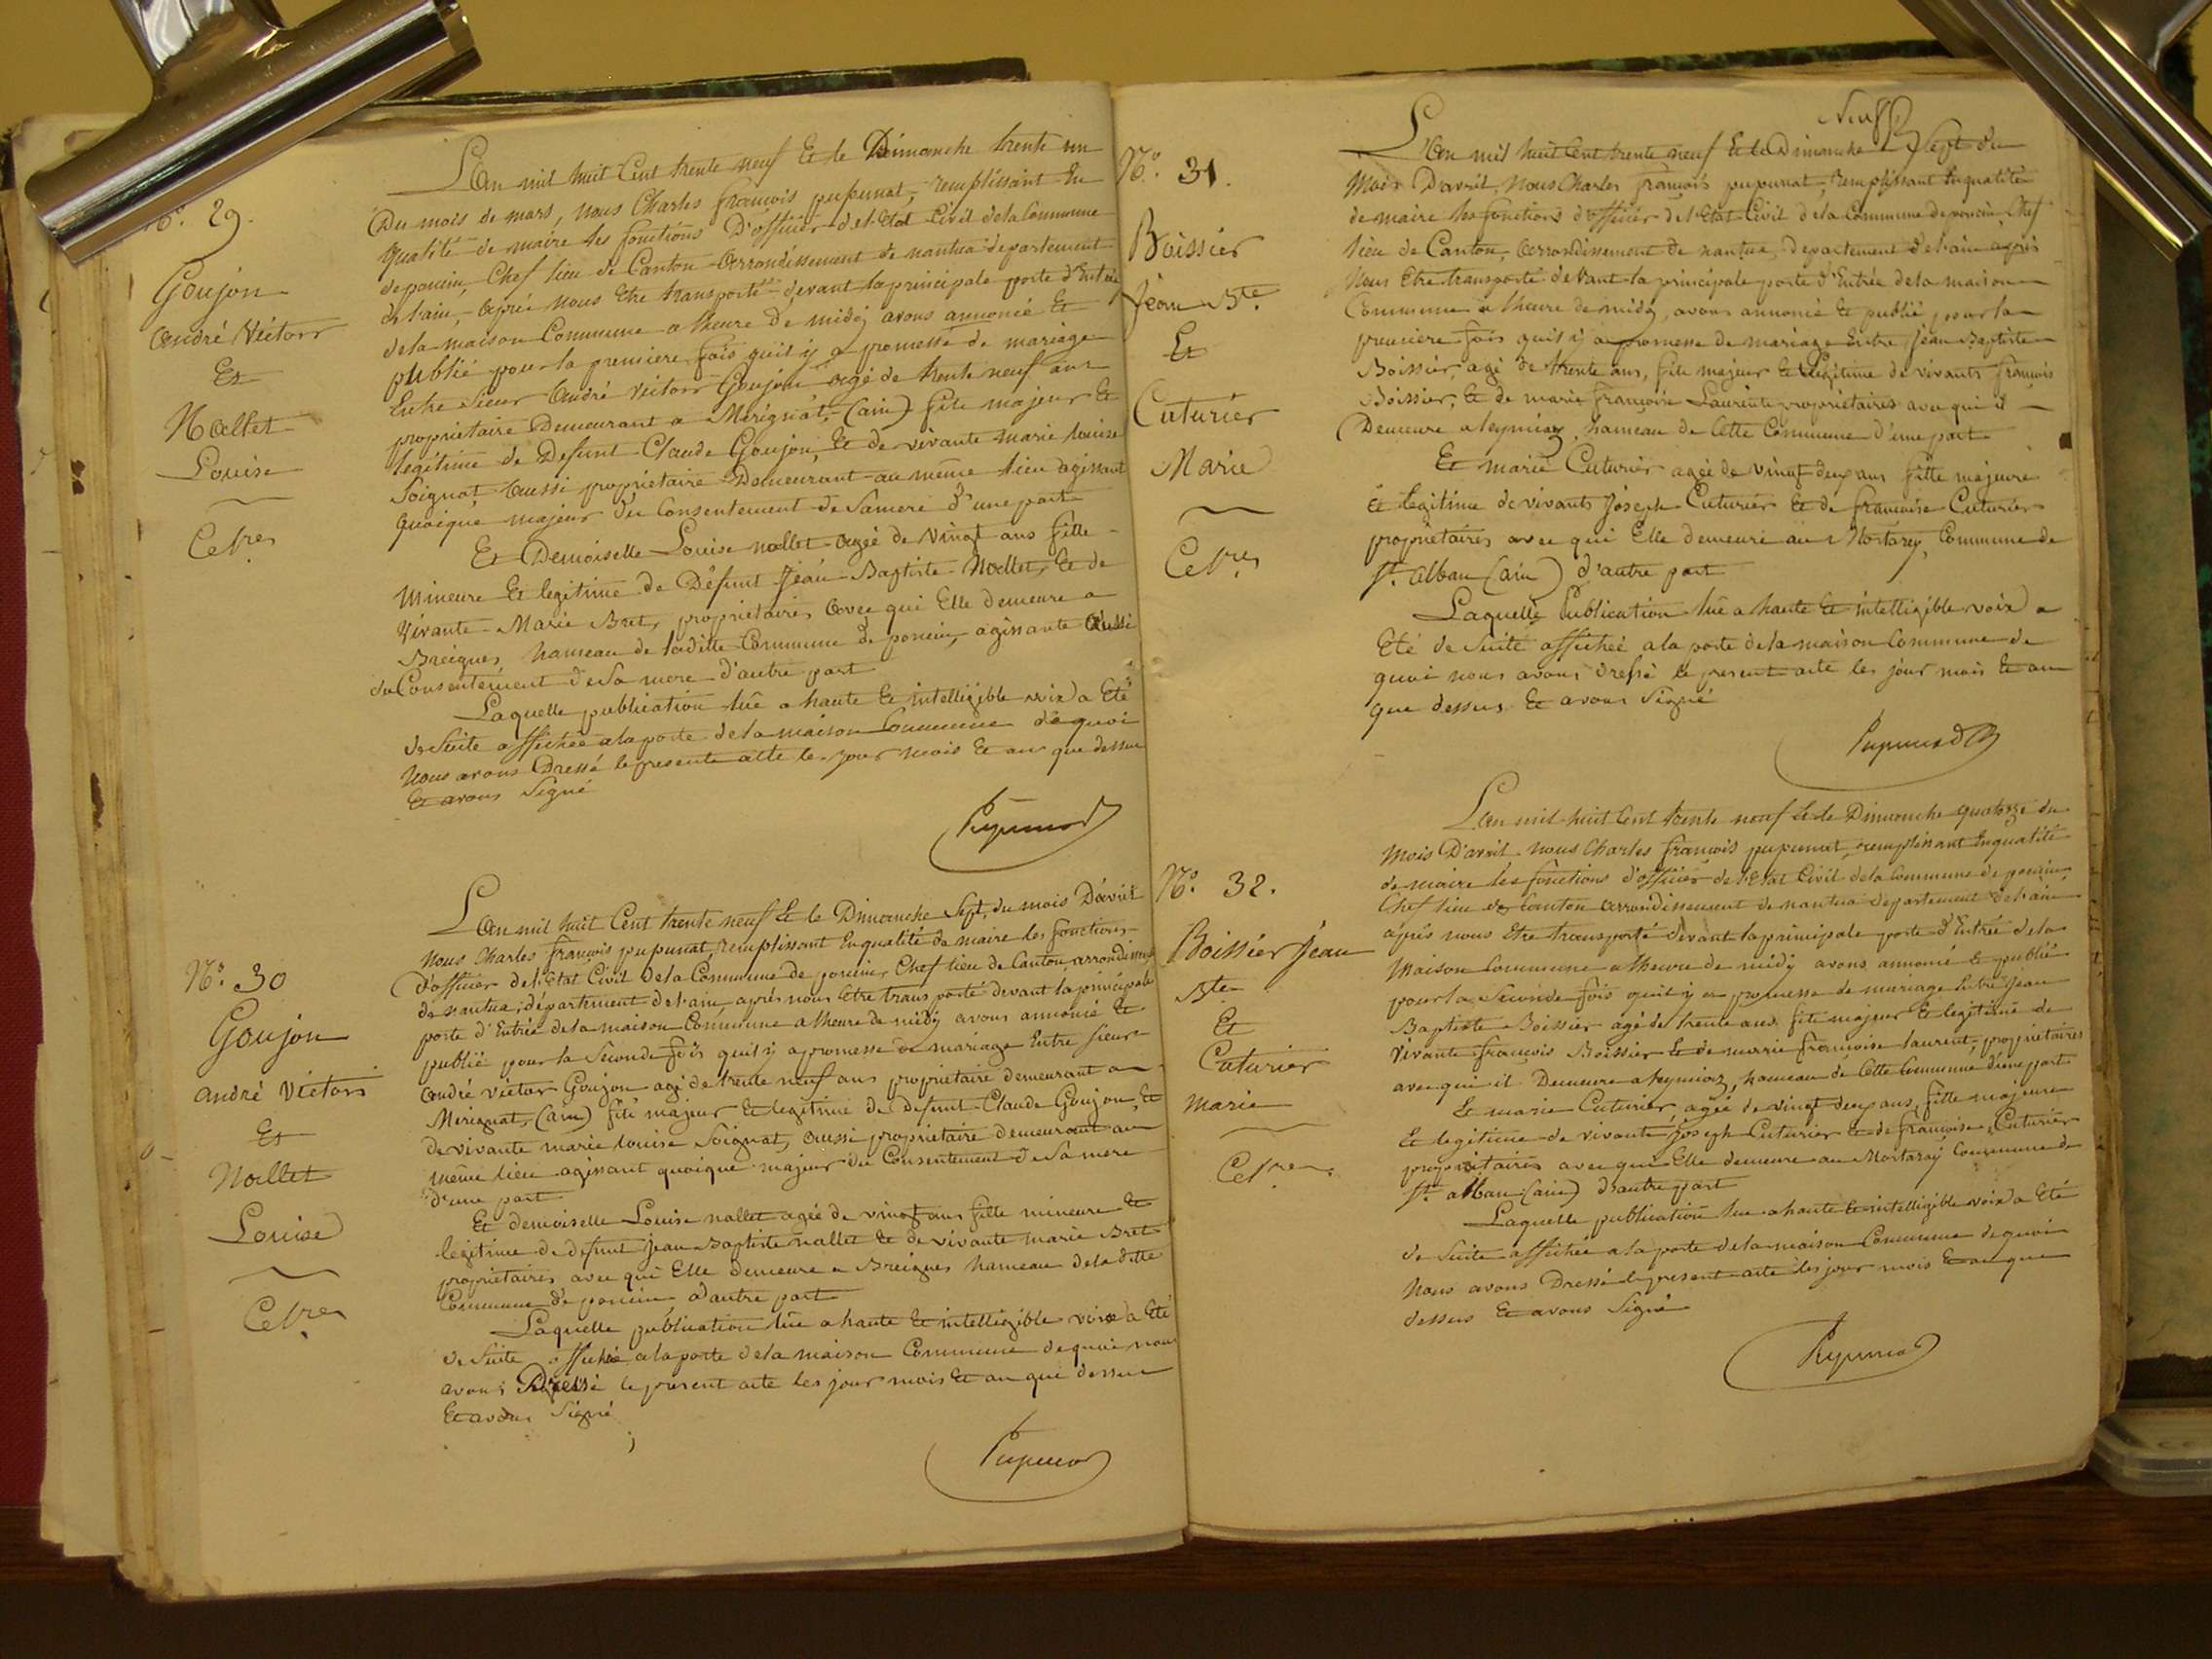 N.º 29.
Goujon
André Victor
Et
Nallet
Louise
L'an mil huit Cent trente neuf Et le Dimanche trente un
Du mois de mars, nous Charles françois pupunat, remplissant En
qualité de maire les fonctions D'officier del'Etat Civil dela Commune
de poncin, Chef lieu de Canton Arrondissement de nantua departement
del'ain, après nous Etre transporté devant la principale porte d'Entrée
dela maison Commune a lheure De midy avons annoncé Et
publié pour la premiere fois quil y a promesse de mariage
Entre Sieur André Victor Goujon agé de trente neuf ans
propriétaire Demeurant a Mérignat, (ain) fils majeur Et
legitime de Defunt Claude Goujon, Et de vivante Marie Louise
Soignat aussi propriétaire Demeurant au même lieu agissant
quoique majeur du Consentement de Sa mere d'une part
Et Demoiselle Louise nallet agée de vingt ans fille
Mineure Et legitime de Défunt Jean Baptiste Nallet, Et de
Vivante Marie Bret, propriétaires avec qui Elle demeure a
Breignes, hameau de ladite Commune de poncin, agissante Aussi
du Consentement de Sa mere d'autre part
Laquelle publication lûe a haute Et intelligible voix a Eté
de Suite affichée a la porte dela maison Commune de quoi
Nous avons Dressé le present acte les jour mois Et an que dessus
Et avons Signé
Pupunat
N.º 30
Goujon
andré Victor
Et
Nallet
Louise
L'an mil huit Cent trente neuf Et le Dimanche Sept du mois D'avril
nous Charles françois pupunat, remplissant En qualité de maire les fonctions
d'officier del'Etat Civil dela Commune de poncin, Chef lieu de Canton, arrondissmt
de nantua, département del'ain, après nous Etre transporté devant la principale
porte d'Entrée dela maison Commune a lheure de midy avons annoncé Et
publié pour la Seconde fois quil y a promesse de mariage Entre Sieur
André victor Goujon agé de trente neuf ans propriétaire demeurant a
Mérignat, (ain) fils majeur Et legitime de Defunt Claude Goujon, Et
de vivante marie louise Soignat, aussi propriétaire demeurant au
même lieu agissant quoique majeur du Consentement de Sa mere
d'une part
Et demoiselle Louise nallet agée de vingt ans fille mineure Et
legitime de defunt jean Baptiste nallet Et de vivante marie Bret
propriétaires avec qui Elle demeure a Breignes hameau dela dite
Commune de poncin d'autre part
Laquelle publication lûe a haute Et intelligible voix a Eté
de Suite affichée a la porte dela maison Commune de quoi nous
avons Dressé le present acte les jour mois Et an que dessus
Et avons Signé
Pupunat
N.º 31.
Boissier
Jean Bte.
Et
Cuturier
Marie
Neuf
L'an mil huit Cent trente neuf Et le Dimanche Sept du
Mois D'avril, nous Charles françois pupunat, remplissant En qualité
de maire les fonctions d'officier del'Etat Civil dela Commune de poncin Chef
lieu de Canton, Arrondissement de nantua, departement del'ain après
Nous Etre transporté devant la principale porte d'Entrée dela maison
Commune a lheure de midy, avons annoncé Et publié pour la
premiere fois quil y a promesse de mariage Entre Jean Baptiste
Boissier, agé de trente ans, fils majeur Et Legitime de vivants françois
Boissier, Et de marie françoise Laurent propriétaires avec qui il
Demeure a leymiaz, hameau de Cette Commune d'une part
Et marie Cuturier agée de vingt deux ans fille majeure
Et legitime de vivants Joseph Cuturier Et de françoise Cuturier
propriétaires avec qui Elle demeure au Mortarey, Commune de
St. Alban (ain) d'autre part
Laquelle Publication lûe a haute Et intelligible voix a
Eté de Suite affichée a la porte dela maison Commune de
quoi nous avons dressé le present acte les jour mois Et an
que dessus Et avons Signé
Pupunat
N.º 32.
Boissier Jean
Bte
Et
Cuturier
marie
L'an mil huit Cent trente neuf Et le Dimanche quatorze du
Mois D'avril nous Charles françois pupunat, remplissant En qualité
de maire les fonctions d'officier del'Etat Civil dela Commune de poncin,
Chef lieu de Canton arrondissement de nantua departement del'ain
après nous Etre transporté devant la principale porte d'Entrée dela
Maison Commune a lheure de midy avons annoncé Et publié
pour la Seconde fois quil y a promesse de mariage Entre Jean
Baptiste Boissier agé de trente ans fils majeur Et legitime de
vivants françois Boissier Et de marie françoise laurent, propriétaires
avec qui il Demeure a leymiaz, hameau de Cette Commune d'une part
Et marie Cuturier, agée de vingt deux ans, fille majeure
Et legitime de vivants Joseph Cuturier Et de françoise Cuturier
propriétaires avec qui Elle demeure au Mortarey Commune de
St. alban (ain) d'autre part
Laquelle publication lue a haute Et intelligible voix a Eté
de Suite affichée a la porte dela maison Commune de quoi
Nous avons Dressé le present acte les jour mois Et an que
dessus Et avons Signé
Pupunat